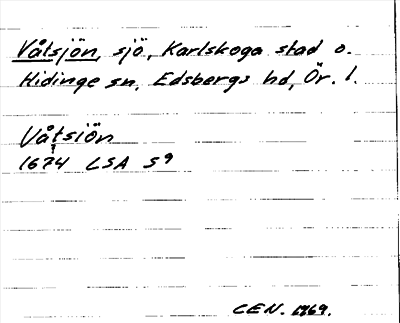 Våtsjön, sjö, Karlskoga stad o.
Hidinge sn, Edsbergs hd, Ör. l.
Våtsiön
1674 LSA S9
CEN. 1969.